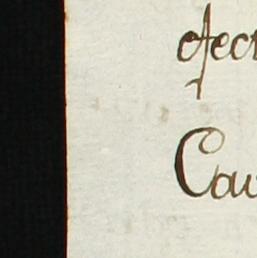 efect
Cau